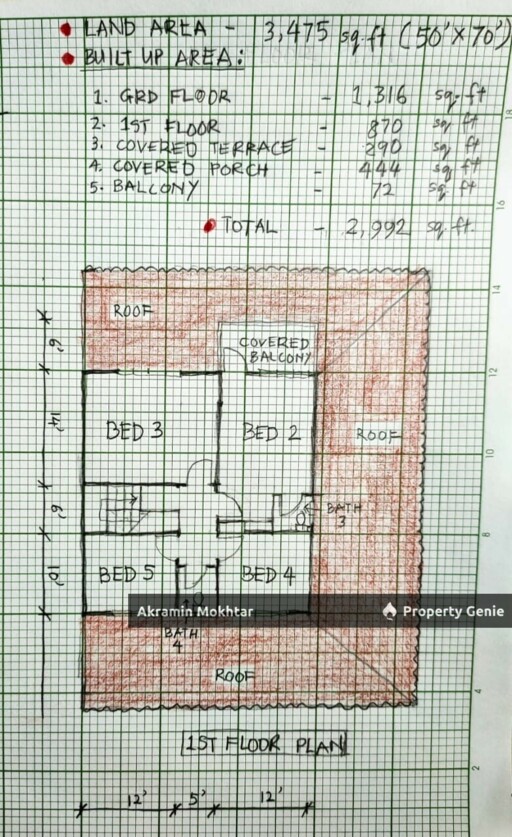 • LAND AREA - 3,475 sq.ft (50'X70')
• BUILT UP AREA:
1. GRD FLOOR - 1,316 sq.ft
2. 1ST FLOOR - 870 sq ft
3. COVERED TERRACE - 290 sq ft
4. COVERED PORCH - 444 sq. ft
5. BALCONY - 72 sq. ft
• TOTAL - 2,992 sq.ft.
18
16
14
ROOF
COVERED
BALCONY
6'
12
BED 3
BED 2
ROOF
14'
10
BATH
3
6'
8
BED 5
BED 4
10'
Akramin Mokhtar
Property Genie
BATH
4
ROOF
4
1ST FLOOR PLAN
2
12' 5' 12'